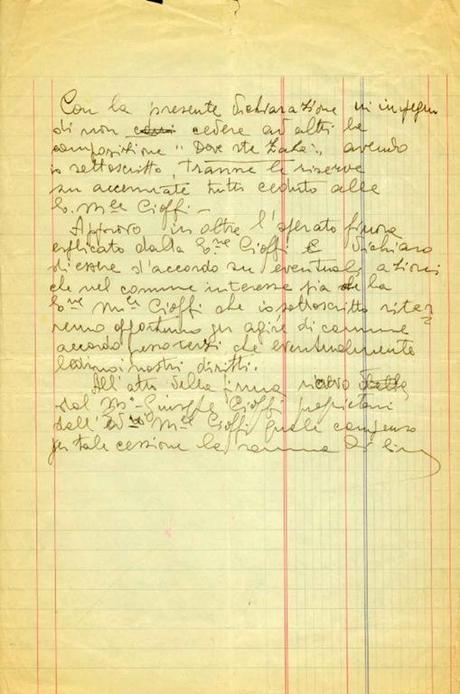 Con la presente dichiarazione mi impegno
di non cedere ad altri la
composizione " Dove sta Zazà ", avendo
io sottoscritto, tranne le riserve
su accennate tutto ceduto alla
C. Mle Cioffi. -
Approvo in oltre l'operato finora
esplicato dalla Cne Cioffi E dichiaro
di essere d'accordo su eventuali azioni
che nel comune interesse sia la
Cne Mle Cioffi che io sottoscritto rite=
remo opportuno per agire di comune
accordo verso terzi che eventualmente
ledino i nostri diritti.
All'atto della firma ricevo
dal M° Giuseppe Cioffi proprietario
dell' Mle Cioffi quale compenso
per tale cessione la somma di Lire